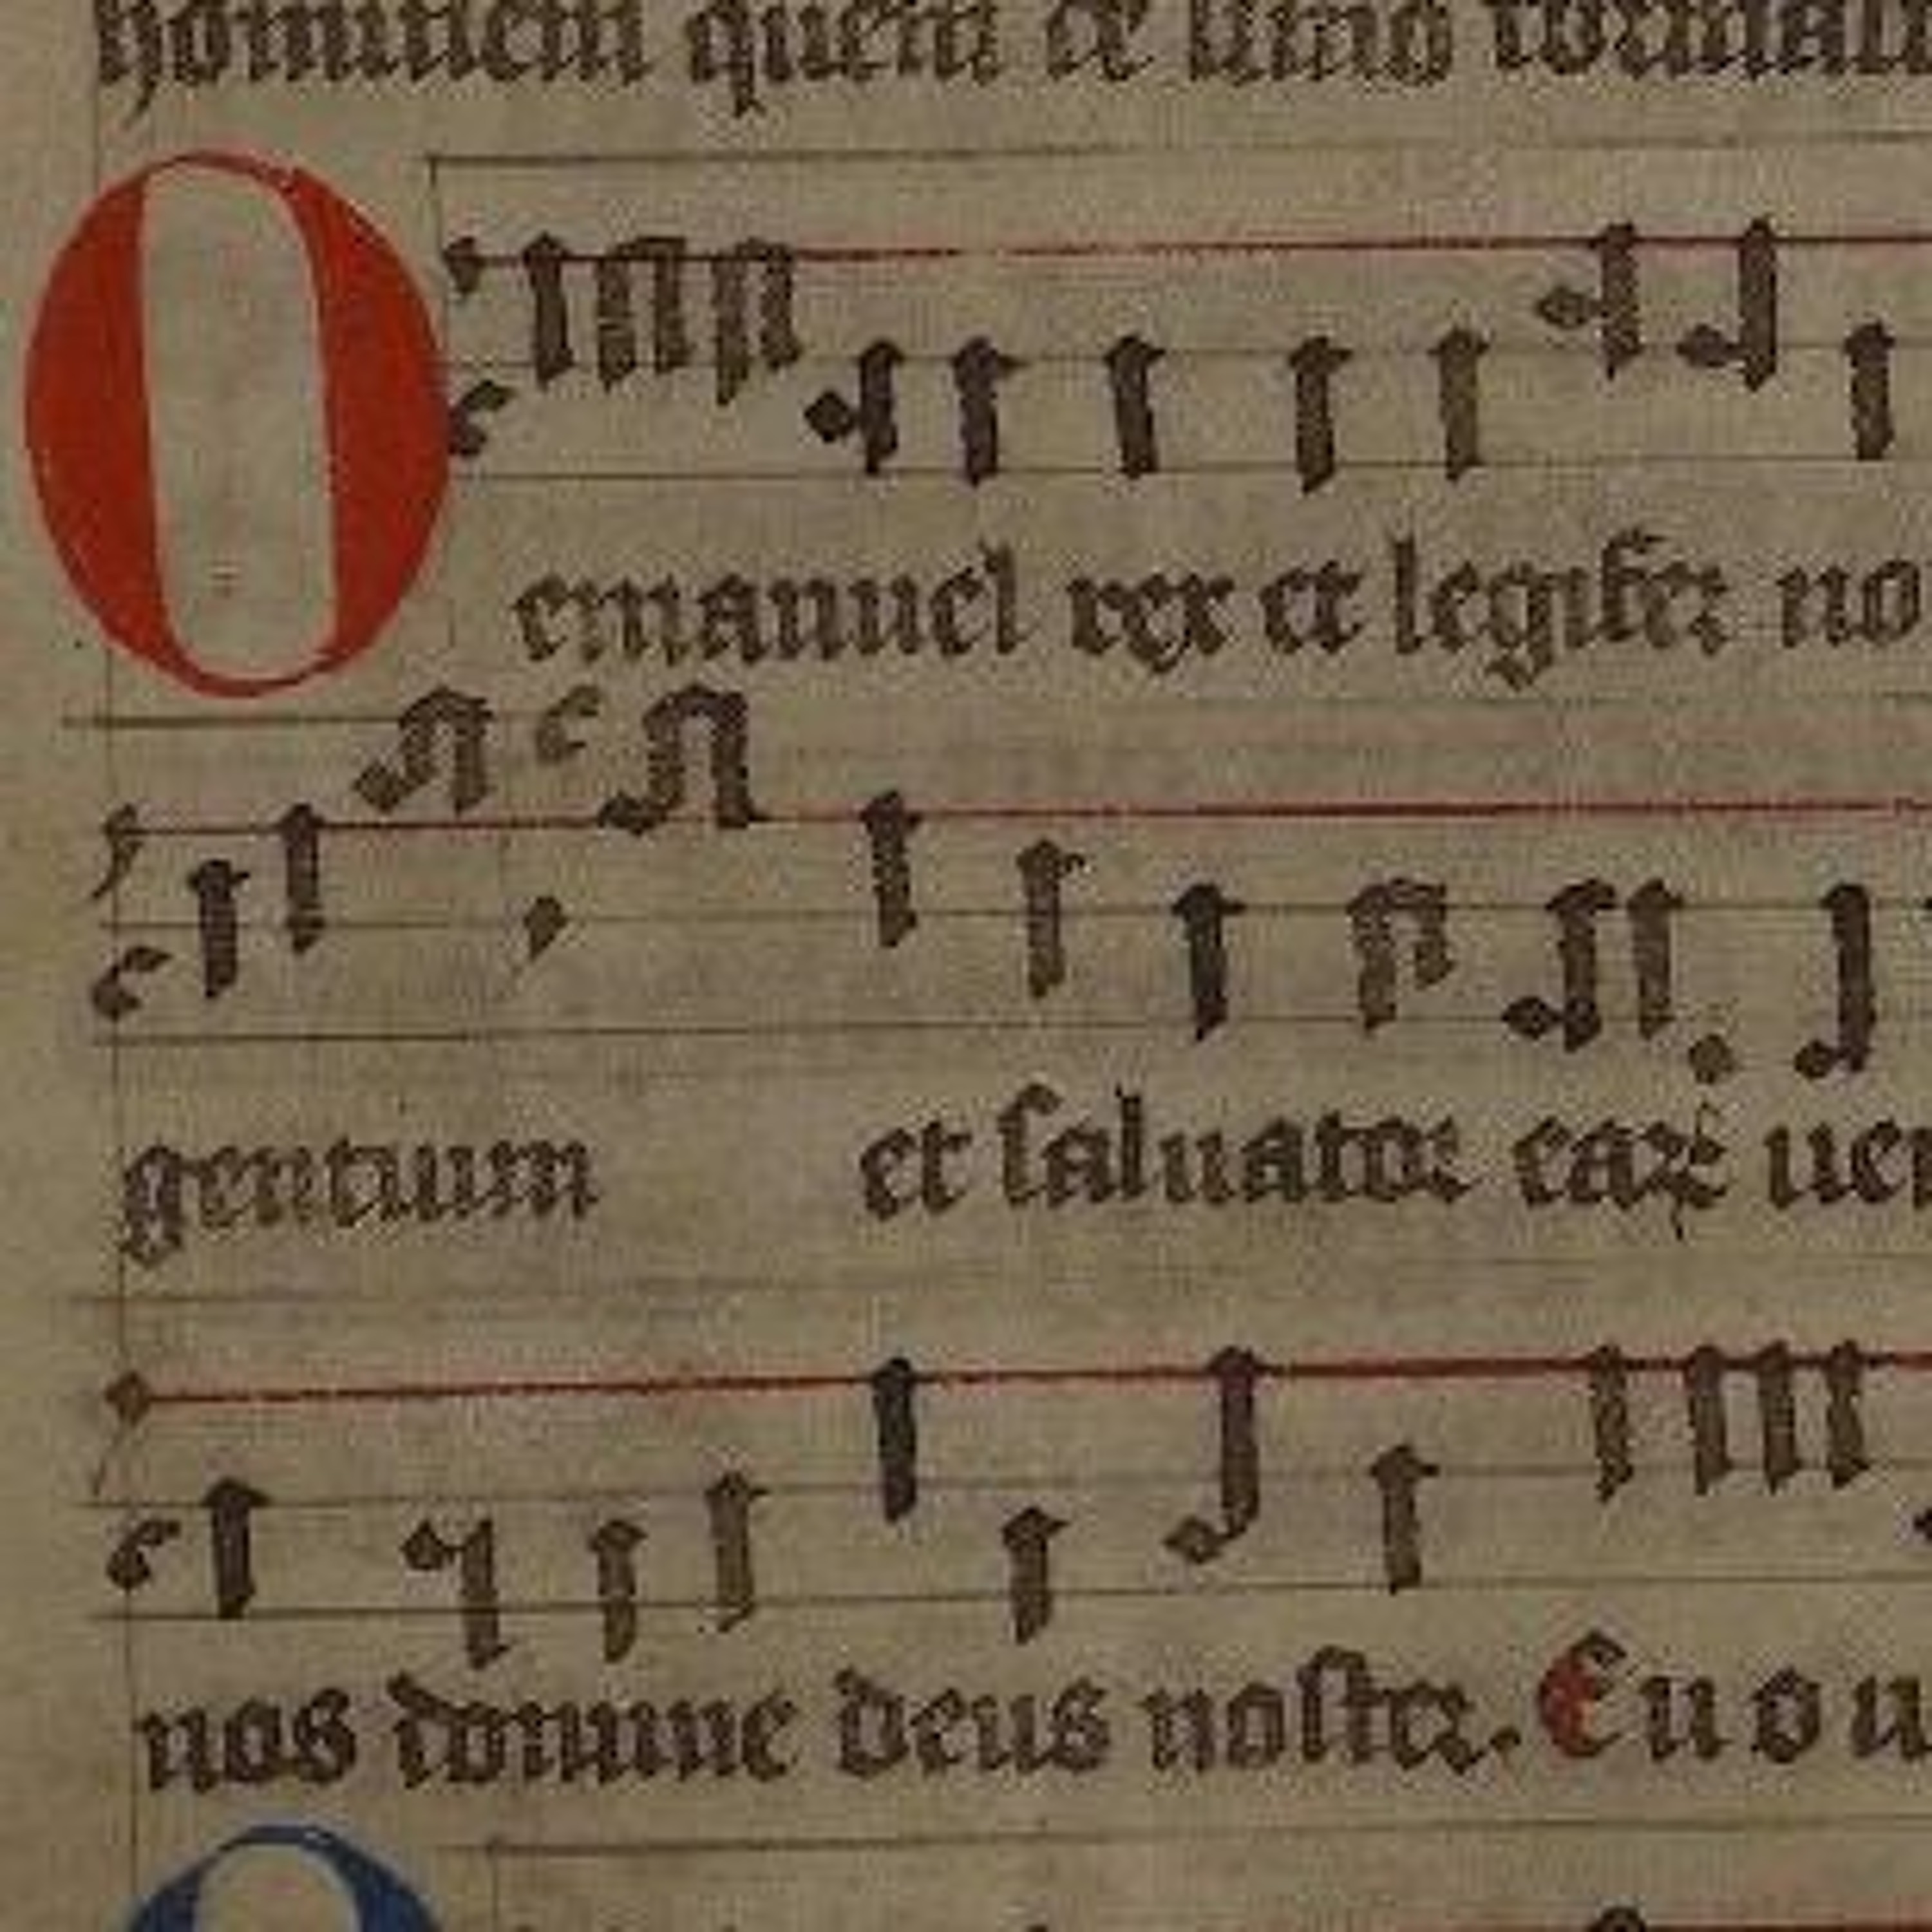 hominem quem de limo formasti
O emanuel rex et legifer no
gentium et saluator eaꝝ uen
nos domine deus noster. Euou
O